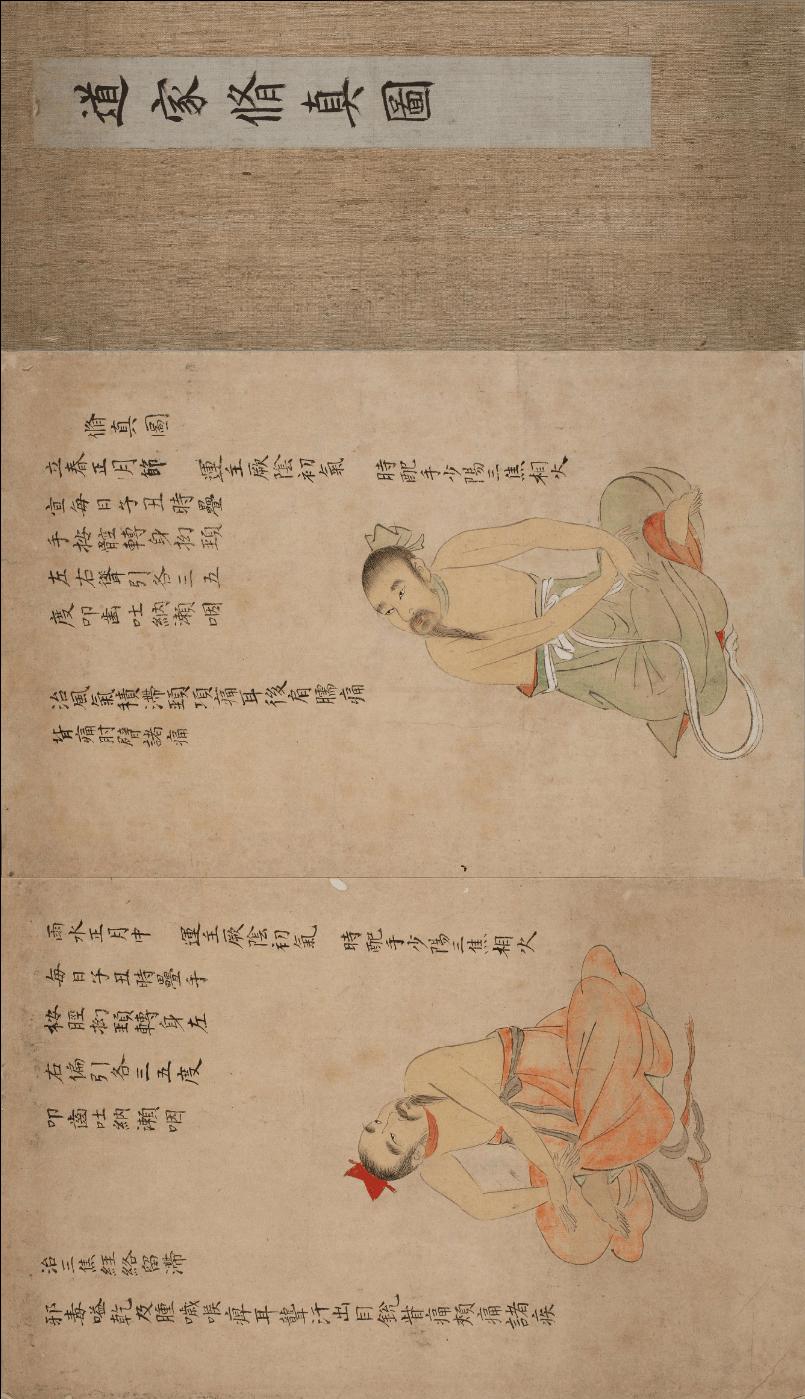 道家脩真圖
脩真圖
立春正月節 運主厥陰初氣 時配手少陽三焦相火
宣每日子丑時疊
手按髀轉身拗頸
左右聳引各三五
度叩齒吐納漱咽
治風氣積滯頸項痛耳後肩臑痛
背痛肘臂諸痛
雨水正月中 運主厥陰初氣 時配手少陽三焦相火
每日子丑時疊手
按脛拗頸轉身左
右偏引各三五度
叩齒吐納漱咽
治三焦經絡留滯
邪毒嗌乾及腫噦喉痺耳聾汗出目銳眥痛頰痛諸疾